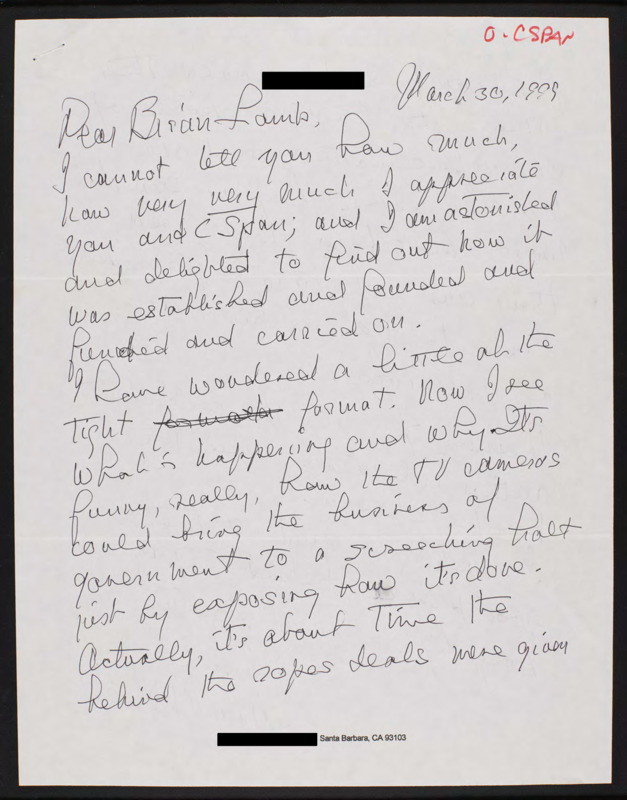 O. CSPAN
March 30, 1999
Dear Brian Lamb,
I cannot tell you how much,
how very very much I appreciate
you and CSpan; and I am astonished
and delighted to find out how it
was established and founded and
funded and carried on.
I have wondered a little at the
tight format. Now I see
what's happening and why. It's
funny, really, how the TV cameras
could bring the business of
government to a screeching halt
just by exposing how it's done.
Actually, it's about time the
behind the ropes deals were given
Santa Barbara, CA 93103